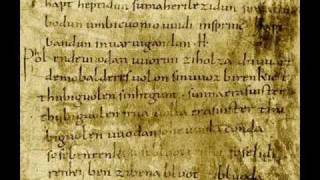 hapt heptidun sumaherilezidun suma
bodun umbicuonio uuidi insprinc hapt
bandun inuar uigandun · H ·
Phol endeuuodan uuorun ziholza du uuart
demobalderes uolon sinuuoz birenkict
thubiguolen sinhtgunt · sunnaerasuister
thubiguolen friia uolla erasuister thu
biguolen uuodan conda
sosebenrenki soselidi
renki ben zibena bluot